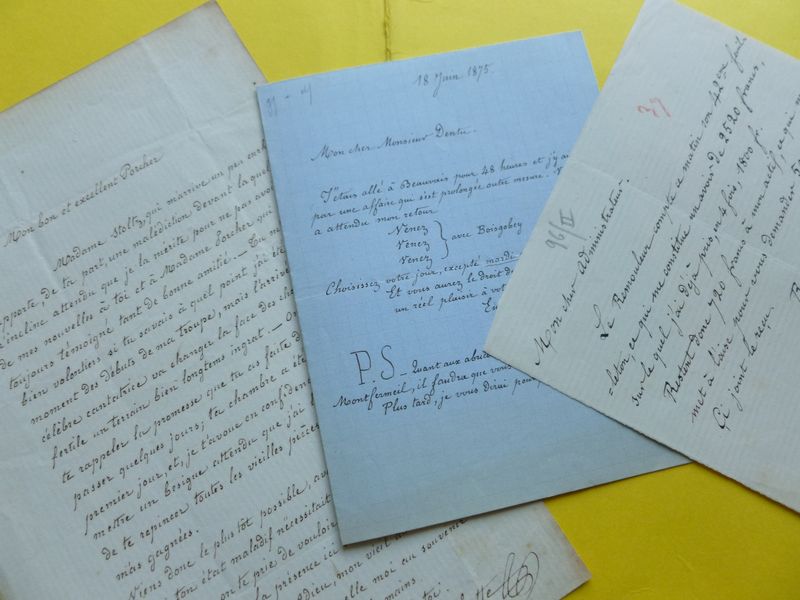 Mon bon et excellent Porcher
Madame Stoltz, qui m'arrive un peu
apporte de ta part, une malédiction devant la
m'incline attendu que je la mérite pour ne pas
de mes nouvelles à toi et à Madame Porcher
toujours témoigné tant de bonne amitié. — Tu
bien volontiers si tu savais à quel point j'ai
moment des débuts de ma troupe, mais l'arrivé
célèbre cantatrice va changer la face des
fertile un terrain bien longtems ingrat. —
te rappeler la promesse que tu as faite
passer quelques jours; ta chambre a
premier jour, et, je t'avoue en confiden
mettre un besigue attendu que j'ai
de te repincer toutes les vieilles pièces
m'as gagnées.
Viens donc le plustôt possible,
ton état maladif nécessitait
on te prie de vouloir
la présence ici
adieu, mon vieil
elle moi au souvenir
toi.
mains
18 Juin 1875.
Mon cher Monsieur Dentu.
J'étais allé à Beauvais pour 48 heures et j'y
par une affaire qui s'est prolongée outre mesure.
a attendu mon retour
Venez
Venez } avec Boisgobey
Venez
Choisissez votre jour, excepté mardi
Et vous aurez le droit de
un réel plaisir à
P.S — Quant aux
Montfermeil, il faudra que vous
Plus tard, je vous dirai
37
96/II
Mon cher Administrateur.
Le Remouleur compte ce matin son 42ème feuil-
=leton, ce qui me constitue un avoir de 2520 francs,
sur le quel j'ai déjà pris, en 4 fois, 1800 f.
Restent donc 720 francs à mon actif, ce qui
met à l'aise pour vous demander
Ci joint le reçu.